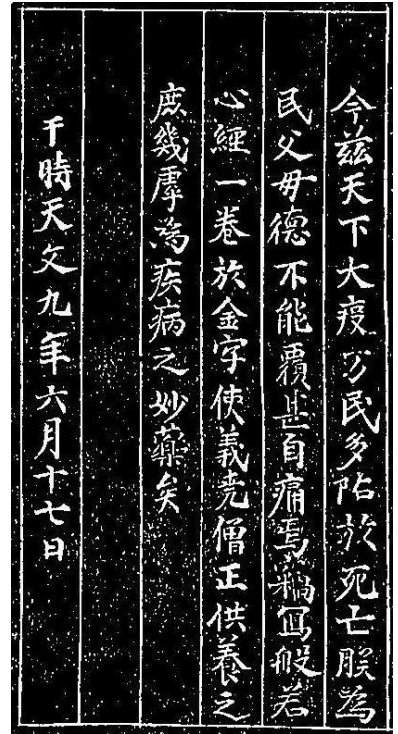 今茲天下大疫万民多阽於死亡朕為
民父母德不能覆甚自痛焉竊寫般若
心經一卷於金字使義堯僧正供養之
庶幾虖為疾病之妙藥矣
于時天文九年六月十七日